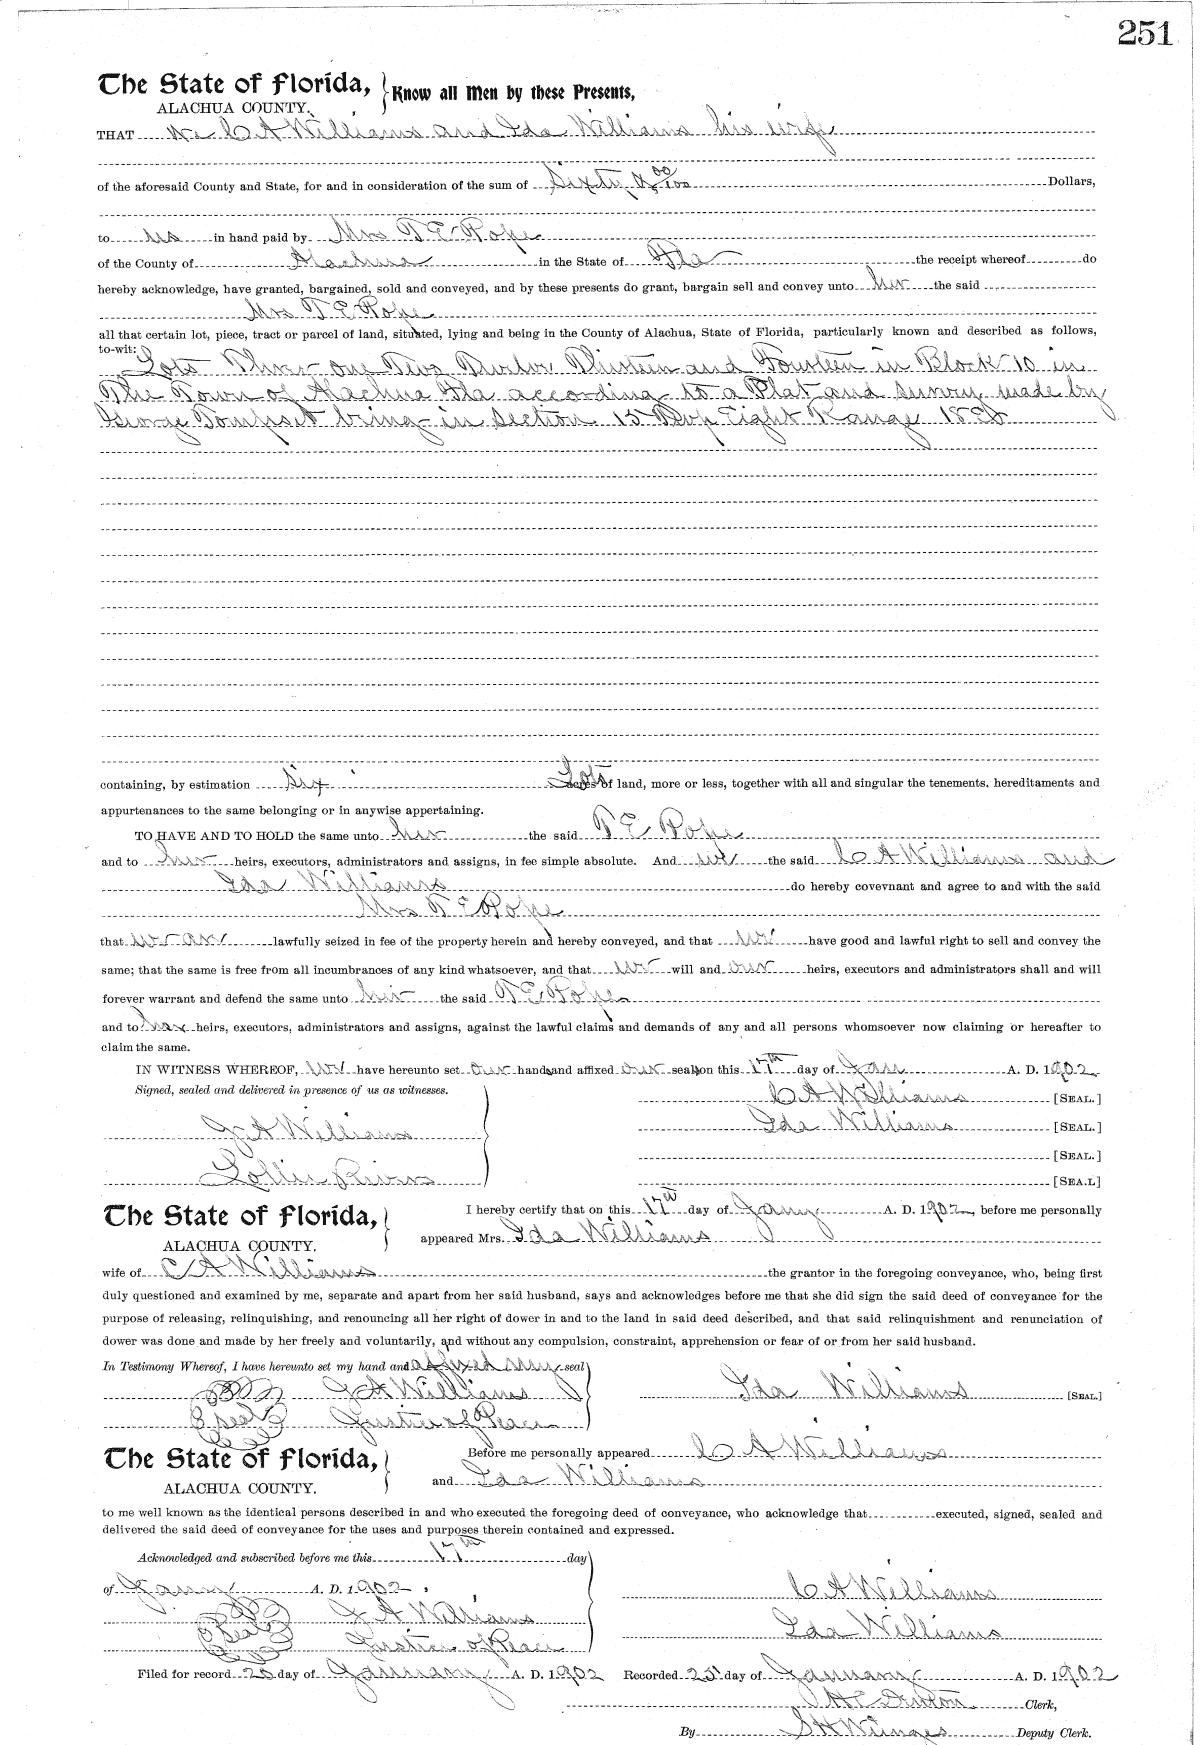 251
The State of Florida, Know all Men by these Presents,
ALACHUA COUNTY.
THAT We C A Williams and Ida Williams his wife
of the aforesaid County and State, for and in consideration of the sum of Sixty & 00/100 Dollars,
to us in hand paid by Mrs T E Pope
of the County of Alachua in the State of Fla the receipt whereof do
hereby acknowledge, have granted, bargained, sold and conveyed, and by these presents do grant, bargain sell and convey unto her the said
Mrs T E Pope
all that certain lot, piece, tract or parcel of land, situated, lying and being in the County of Alachua, State of Florida, particularly known and described as follows,
to-wit:
Lots Three one Two Twelve Thirteen and Fourteen in Block 10 in
The Town of Alachua Fla according to a Plat and survey made by
George being in Section 15 Twp Eight Range 18
containing, by estimation six Lots of land, more or less, together with all and singular the tenements, hereditaments and
appurtenances to the same belonging or in anywise appertaining.
TO HAVE AND TO HOLD the same unto her the said T E Pope
and to her heirs, executors, administrators and assigns, in fee simple absolute. And we the said C A Williams and
Ida Williams do hereby covevnant and agree to and with the said
Mrs T E Pope
that we are lawfully seized in fee of the property herein and hereby conveyed, and that we have good and lawful right to sell and convey the
same; that the same is free from all incumbrances of any kind whatsoever, and that we will and our heirs, executors and administrators shall and will
forever warrant and defend the same unto her the said T E Pope
and to her heirs, executors, administrators and assigns, against the lawful claims and demands of any and all persons whomsoever now claiming or hereafter to
claim the same.
IN WITNESS WHEREOF, we have hereunto set our hands and affixed our seals on this 17th day of Jan A. D. 1902
Signed, sealed and delivered in presence of us as witnesses.
C A Williams [SEAL.]
J A Williams
Ida Williams [SEAL.]
[SEAL.]
Lollie Rivers
[SEA.L]
The State of Florida,
ALACHUA COUNTY.
I hereby certify that on this 17th day of Jany A. D. 1902, before me personally
appeared Mrs. Ida Williams
wife of C A Williams the grantor in the foregoing conveyance, who, being first
duly questioned and examined by me, separate and apart from her said husband, says and acknowledges before me that she did sign the said deed of conveyance for the
purpose of releasing, relinquishing, and renouncing all her right of dower in and to the land in said deed described, and that said relinquishment and renunciation of
dower was done and made by her freely and voluntarily, and without any compulsion, constraint, apprehension or fear of or from her said husband.
In Testimony Whereof, I have hereunto set my hand and affixed my seal
J A Williams Ida Williams [SEAL.]
Seal Justice of Peace
The State of Florida,
ALACHUA COUNTY.
Before me personally appeared C A Williams
and Ida Williams
to me well known as the identical persons described in and who executed the foregoing deed of conveyance, who acknowledge that executed, signed, sealed and
delivered the said deed of conveyance for the uses and purposes therein contained and expressed.
Acknowledged and subscribed before me this 17th day
of Jany A. D. 1902
C A Williams
J A Williams
Seal
Ida Williams
Justice of Peace
Filed for record 25 day of January A. D. 1902 Recorded 25 day of January A. D. 1902
H C Denton Clerk,
By S H Wienges Deputy Clerk.